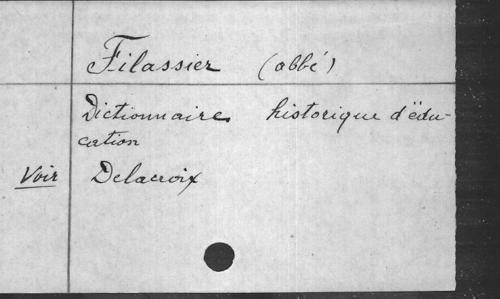 Filassier (abbé)
Dictionnaire historique d'édu-
cation
Voir Delacroix